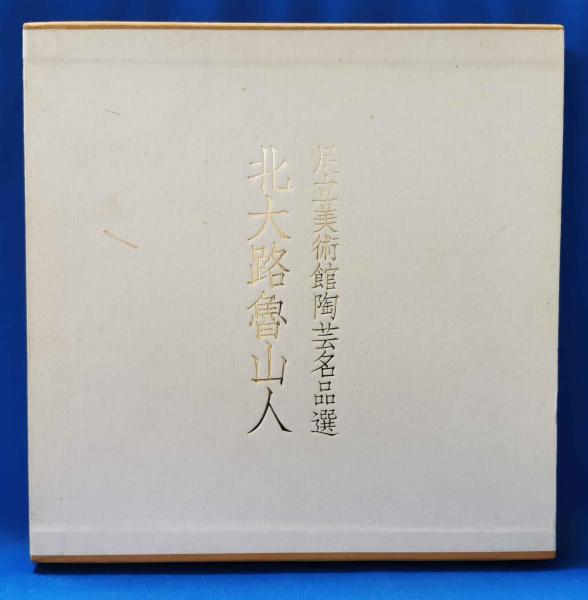 足立美術館陶芸名品選
北大路魯山人